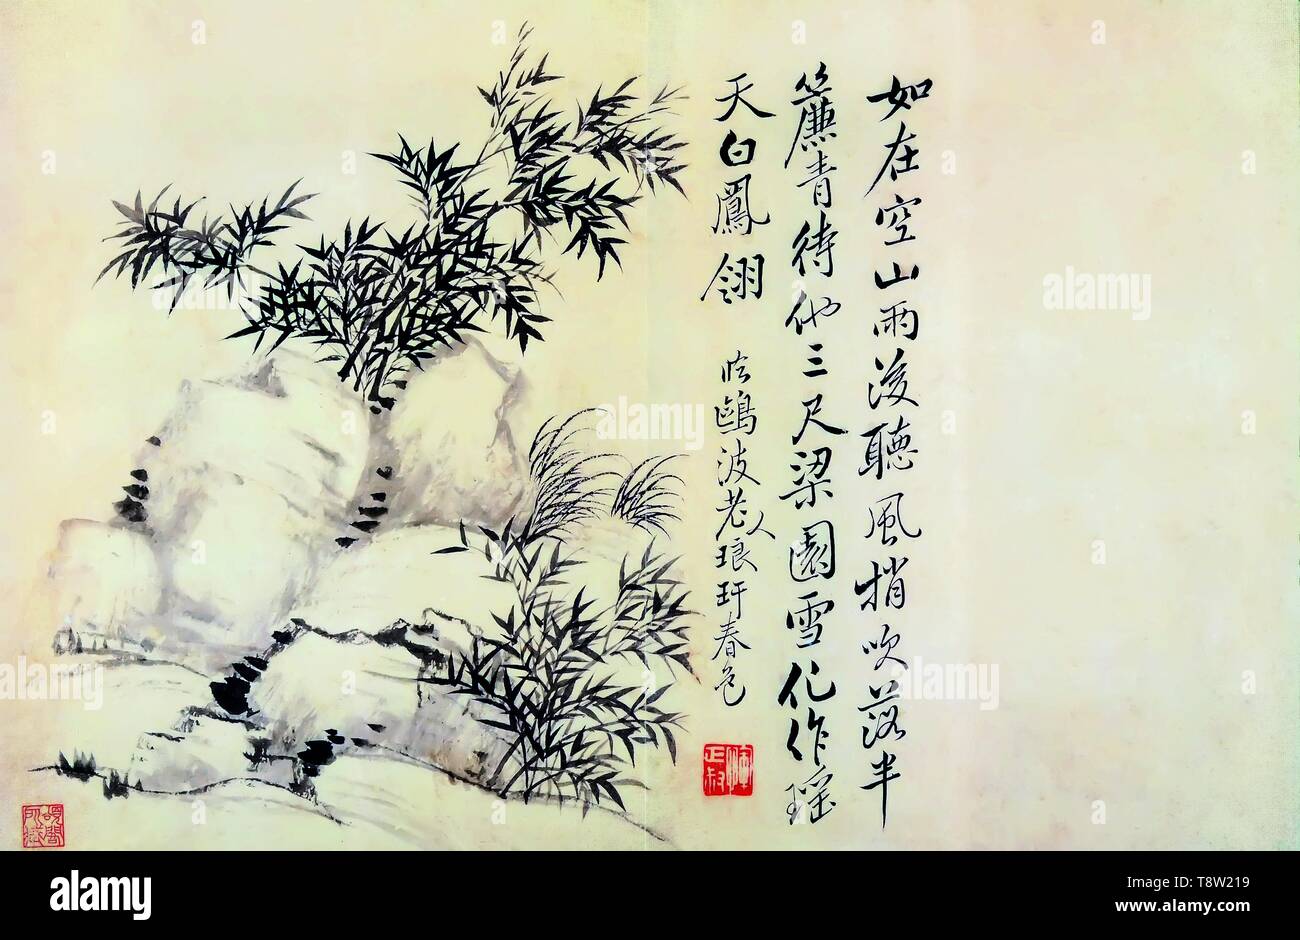 如在空山雨後聽風梢吹落半
簾青待他三尺梁園雪化作瑶
天白鳳翎
临鷗波老人琅玕春色
惲正叔
alamy
alamy
Image ID: T8W219
www.alamy.com